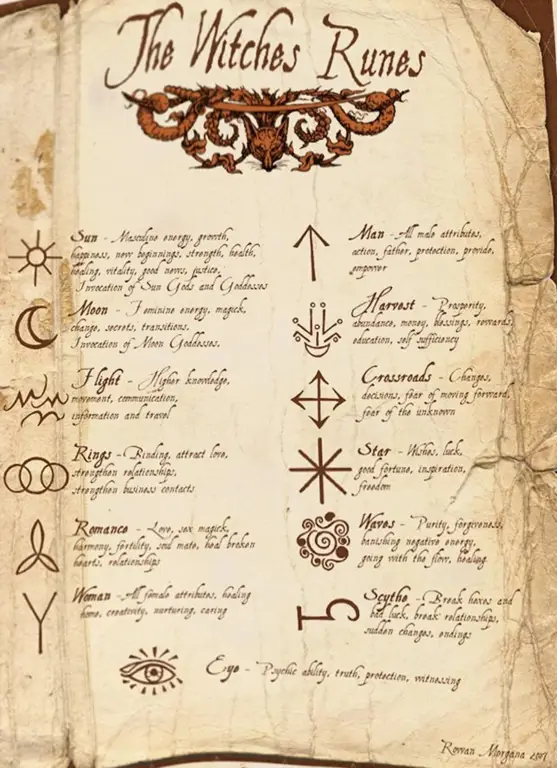 The Witches Runes
Sun - Masculine energy, growth,
happiness, new beginnings, strength, health,
healing, vitality, good news, justice,
Invocation of Sun Gods and Goddesses
Moon - Feminine energy, magick,
change, secrets, transitions.
Invocation of Moon Goddesses.
Flight - Higher knowledge,
movement, communication,
information and travel
Rings - Binding, attract love,
strengthen relationships,
strengthen business contacts
Romance - Love, sex magick,
harmony, fertility, soul mate, heal broken
hearts, relationships
Woman - All female attributes, healing
home, creativity, nurturing, caring
Man - All male attributes,
action, father, protection, provide,
empower
Harvest - Prosperity,
abundance, money, blessings, rewards,
education, self sufficiency
Crossroads - Changes,
decisions, fear of moving forward,
fear of the unknown
Star - Wishes, luck,
good fortune, inspiration,
freedom
Waves - Purity, forgiveness,
banishing negative energy,
going with the flow, healing
Scythe - Break hexes and
bad luck, break relationships,
sudden changes, endings
Eye - Psychic ability, truth, protection, witnessing
Rowan Morgana 2017